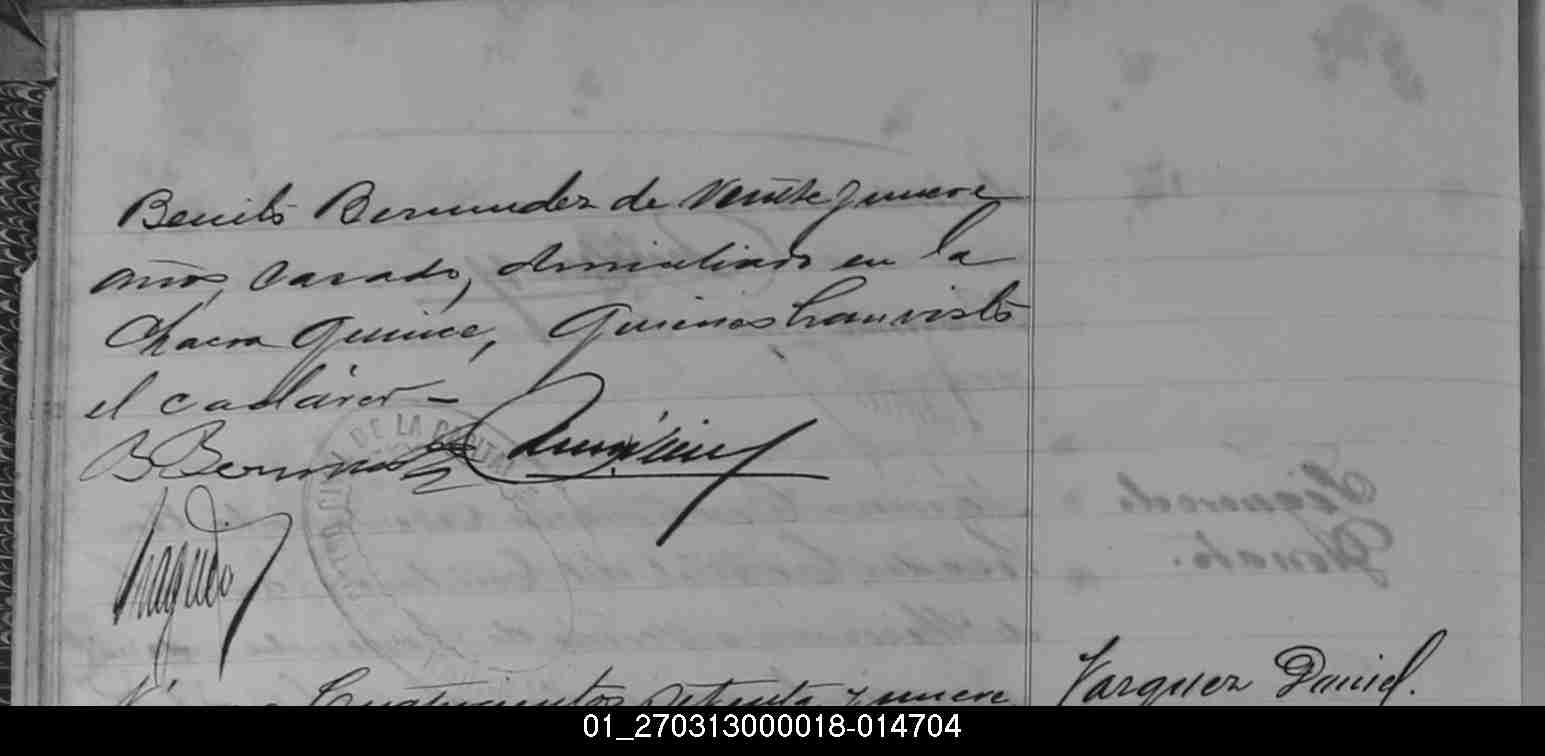 Benito Bermudez de veinte y nueve
años, casado, domiciliado en la
Chacra quince, quienes han visto
el cadáver —
B Bermudez
DE LA
Cuatrocientos setenta y nueve
Vazquez Daniel.
01_270313000018-014704